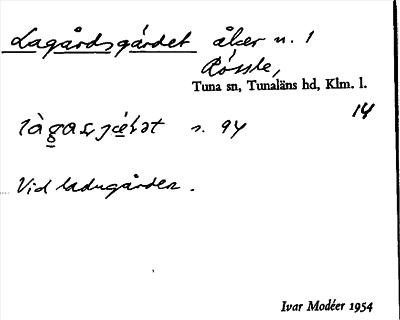 Lagårdsgärdet åker n. 1
Rössle,
Tuna sn, Tunaläns hd, Klm. l.
14
s. 94
Vid ladugården.
Ivar Modéer 1954